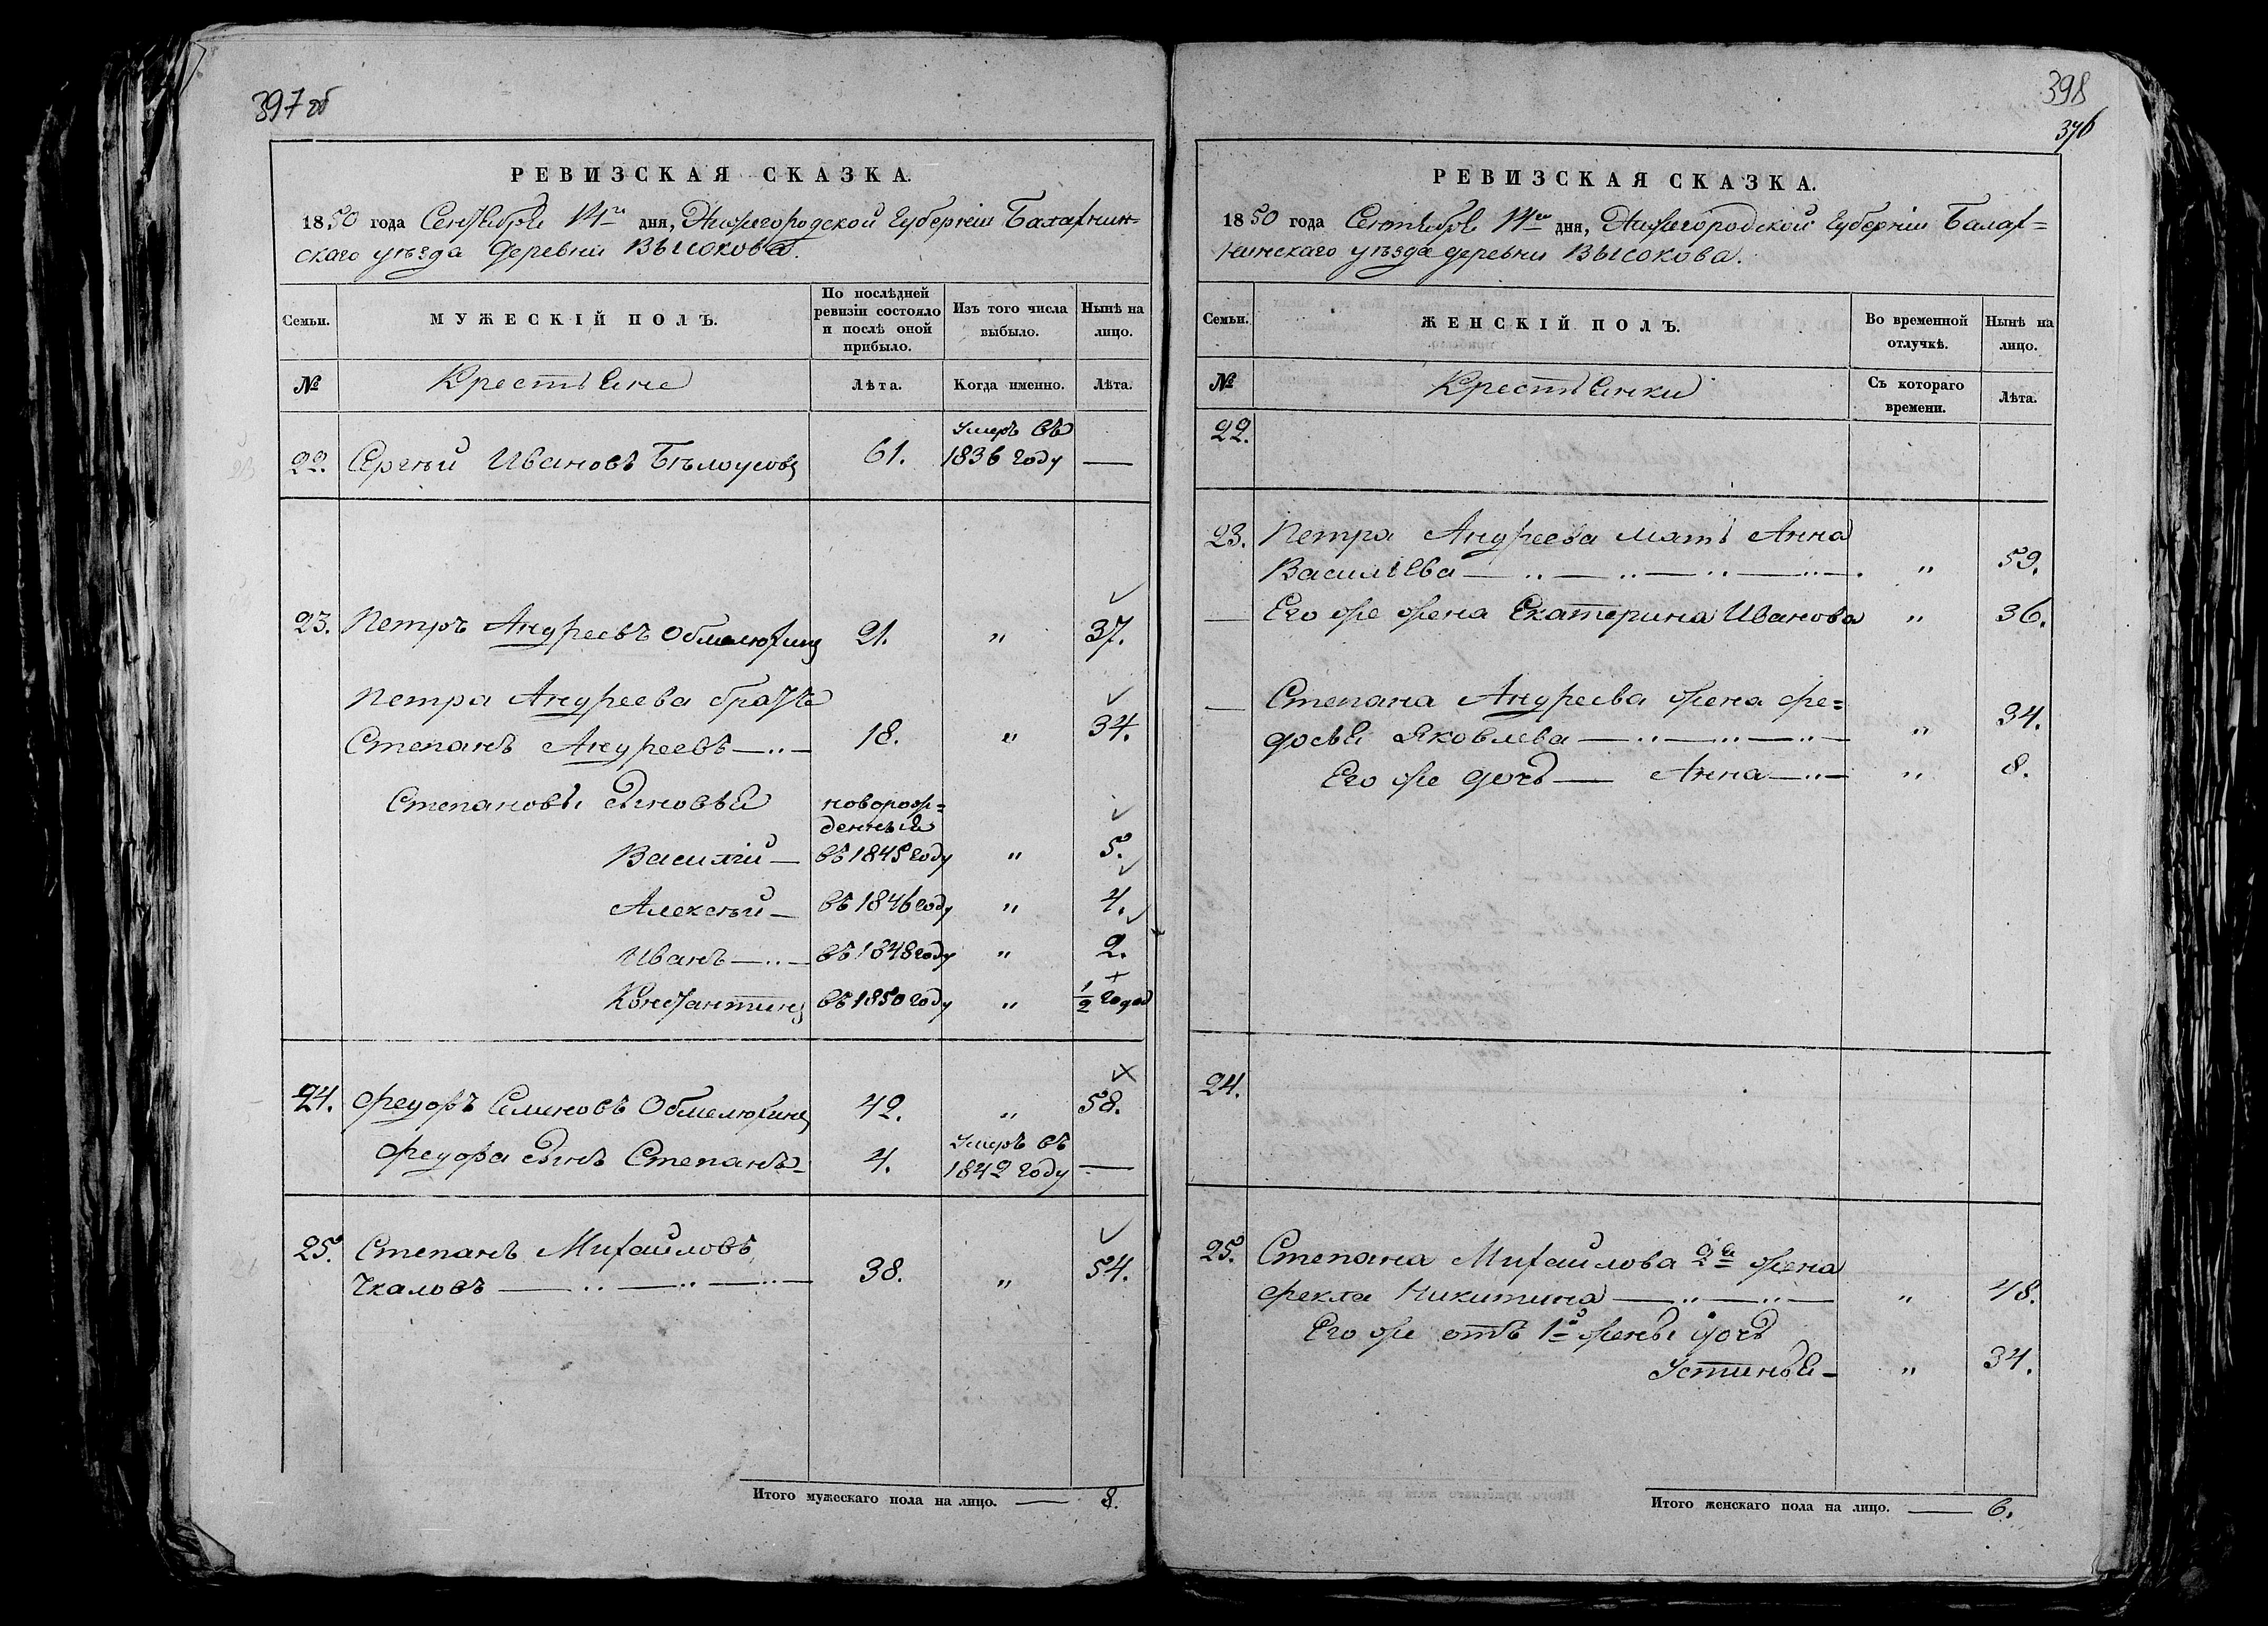 397 об
РЕВИЗСКАЯ СКАЗКА.
1850 года Сентября 14го дня, Нижегородской Губернии Балахнин-
скаго уѣзда деревни Высокова.
Семьи.
МУЖЕСКІЙ ПОЛЪ.
По послѣдней ревизіи состояло и послѣ оной прибыло.
Изъ того числа выбыло.
Нынѣ на лицо.
№
Крестьяне
Лѣта.
Когда именно.
Лѣта.
22. Сергѣй Ивановъ Бѣлоусовъ 61. Умеръ въ 1836 году —
23. Петръ Андреевъ Обмелюхинъ 21. " 37.
Петра Андреева братъ
Степанъ Андреевъ — 18. " 34.
Степановы сыновья новорож=
денный
Василій — въ 1845 году " 5.
Алексѣй — въ 1846 году " 4.
Иванъ — въ 1848 году " 2.
Константинъ въ 1850 году " 1/2 года
24. Федоръ Семеновъ Обмелюхинъ 42. " 58.
Федора сынъ Степанъ 4. Умеръ въ 1842 году —
25. Степанъ Михайловъ
Чкаловъ — 38. " 54.
Итого мужескаго пола на лицо. — 8.
398
376
РЕВИЗСКАЯ СКАЗКА.
1850 года Сентября 14го дня, Нижегородской Губерніи Балах=
нинскаго уѣзда деревни Высокова.
Семьи.
ЖЕНСКІЙ ПОЛЪ.
Во временной отлучкѣ.
Нынѣ на лицо.
№
Крестьянки
Съ котораго времени.
Лѣта.
22.
23. Петра Андреева мать Анна
Васильева — " 59.
— Его же жена Екатерина Иванова " 36.
— Степана Андреева жена Фе=
досья Яковлева — " 34.
Его же дочь — Анна — " 8.
24.
25. Степана Михайлова 2я жена
Фекла Никитина — " 48.
Его же отъ 1й жены дочь
Устинья — " 34.
Итого женскаго пола на лицо. — 6.